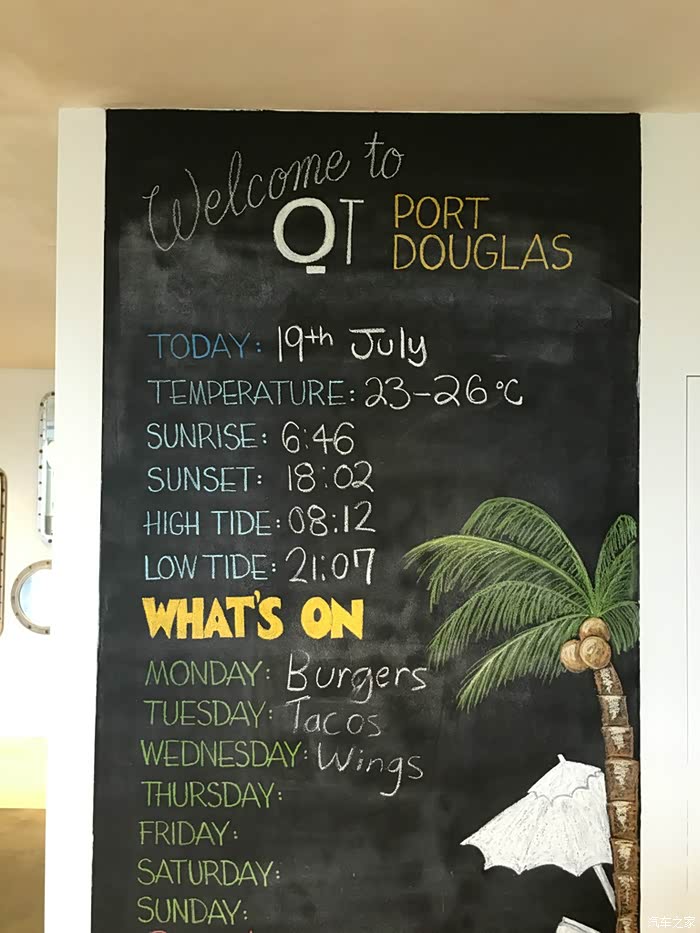 Welcome to
QT PORT
DOUGLAS
TODAY: 19th July
TEMPERATURE: 23-26°C
SUNRISE: 6:46
SUNSET: 18:02
HIGH TIDE: 08:12
LOW TIDE: 21:07
WHAT'S ON
MONDAY: Burgers
TUESDAY: Tacos
WEDNESDAY: Wings
THURSDAY:
FRIDAY:
SATURDAY:
SUNDAY:
汽车之家